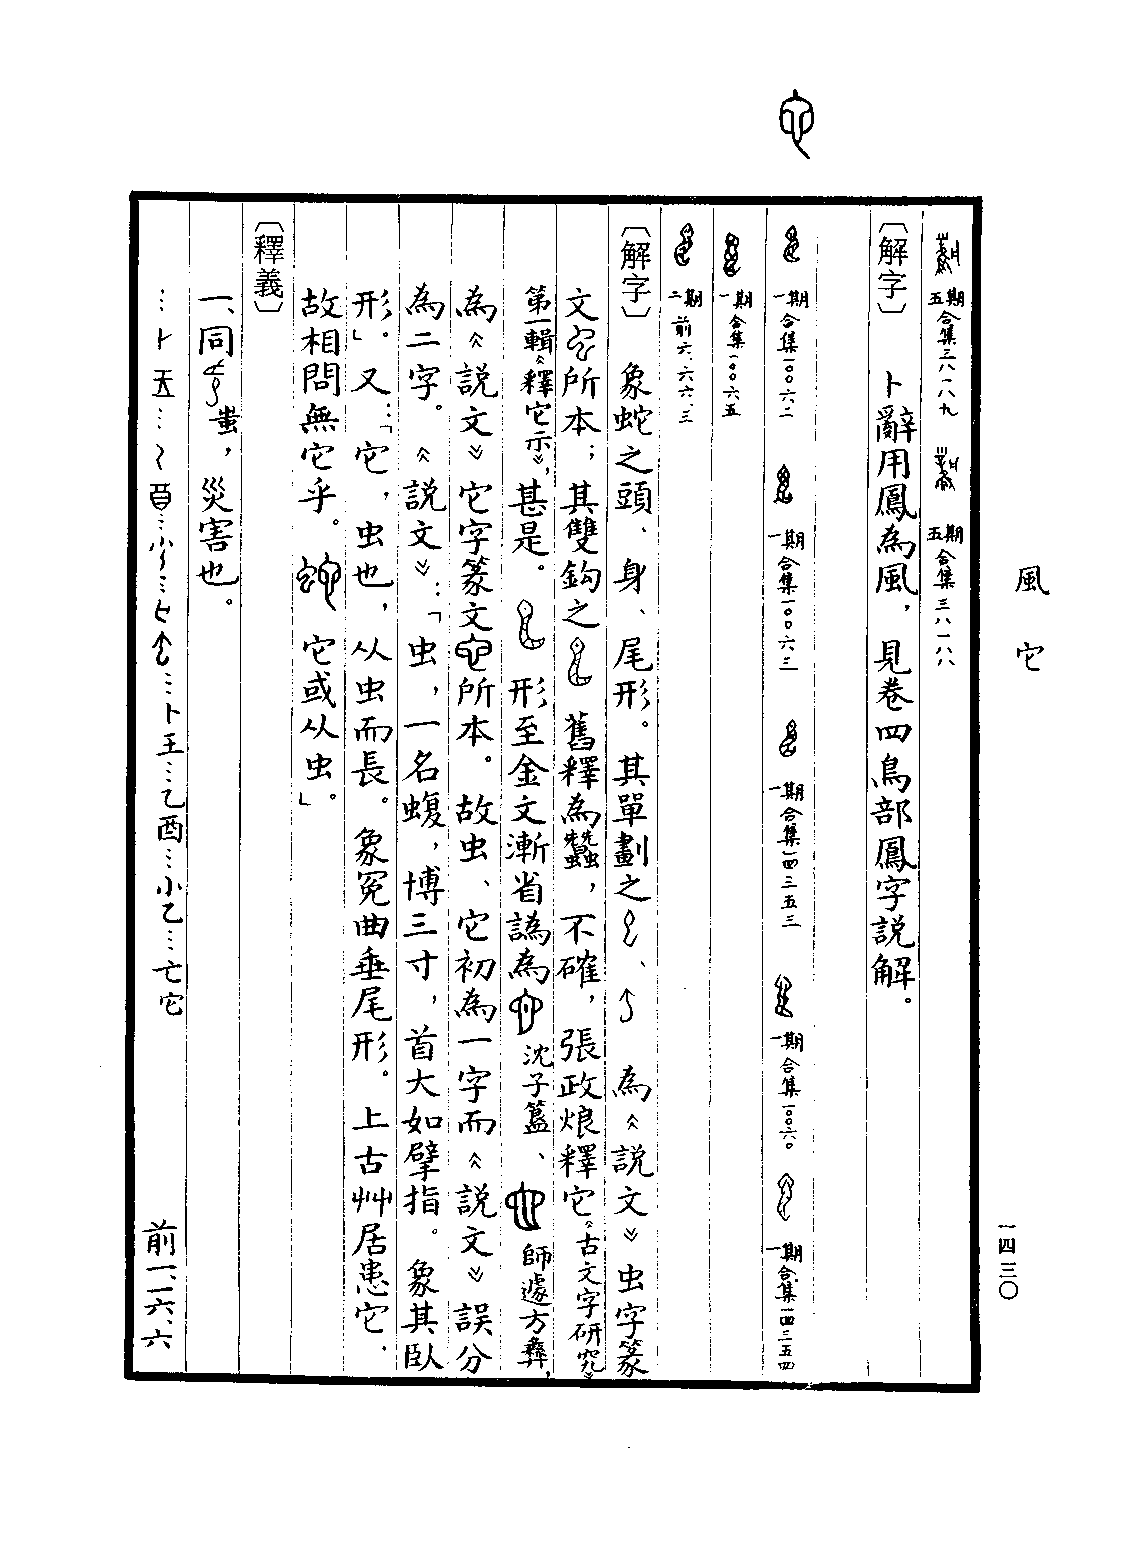 風 它
一四三〇
五期 合集三八一八九 五期 合集三八一八八
〔解字〕 卜辭用鳳為風，見卷四鳥部鳳字説解。
一期 合集一〇〇六二 一期 合集一〇〇六三 一期 合集一四三五三 一期 合集一〇〇六〇 一期 合集一四三五四
一期 合集一〇〇六五
二期 前六.六六.三
〔解字〕 象蛇之頭、身、尾形。其單劃之 、 為《説文》虫字篆
文 所本；其雙鈎之 舊釋為蠶，不確，張政烺釋它《古文字研究》
第一輯《釋它示》，甚是。 形至金文漸省譌為 沈子簋、 師遽方彝，
為《説文》它字篆文 所本。故虫、它初為一字而《説文》誤分
為二字。《説文》：「虫，一名蝮，博三寸，首大如擘指。象其臥
形」。又：「它，虫也，从虫而長。象冤曲垂尾形。上古艸居患它，
故相問無它乎。 它或从虫」。
〔釋義〕
一、同 蚩，災害也。
…卜 … 酉… … …卜王…乙酉…小乙…亡它 前一.一六.六